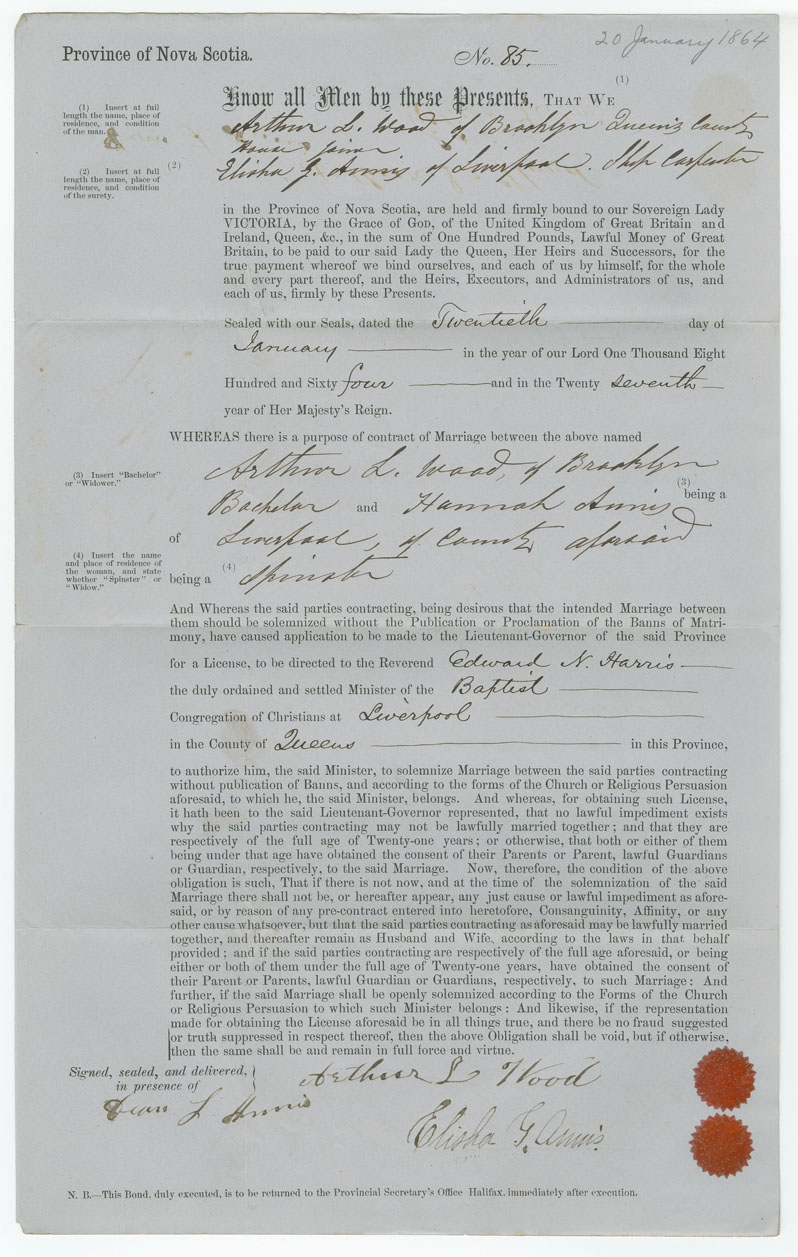 20 January 1864
Province of Nova Scotia.
No. 85.
(1) Insert at full
length the name, place of
residence, and condition
of the man.
&
(2) Insert at full
length the name, place of
residence, and condition
of the surety.
Know all Men by these Presents, THAT WE (1)
Arthur L. Wood of Brooklyn Queens County
House Joiner
(2) Elisha G. Annis of Liverpool. Ship Carpenter
in the Province of Nova Scotia, are held and firmly bound to our Sovereign Lady
VICTORIA, by the Grace of GOD, of the United Kingdom of Great Britain and
Ireland, Queen, &c., in the sum of One Hundred Pounds, Lawful Money of Great
Britain, to be paid to our said Lady the Queen, Her Heirs and Successors, for the
true payment whereof we bind ourselves, and each of us by himself, for the whole
and every part thereof, and the Heirs, Executors, and Administrators of us, and
each of us, firmly by these Presents.
Sealed with our Seals, dated the Twentieth day of
January in the year of our Lord One Thousand Eight
Hundred and Sixty four and in the Twenty seventh
year of Her Majesty's Reign.
WHEREAS there is a purpose of contract of Marriage between the above named
Arthur L. Wood, of Brooklyn
(3) Insert "Bachelor"
or "Widower."
(3) being a
Bachelor and Hannah Annis
of Liverpool, of County aforsaid
(4) Insert the name
and place of residence of
the woman, and state
whether "Spinster" or
"Widow."
being a (4) Spinster
And Whereas the said parties contracting, being desirous that the intended Marriage between
them should be solemnized without the Publication or Proclamation of the Banns of Matri-
mony, have caused application to be made to the Lieutenant-Governor of the said Province
for a License, to be directed to the Reverend Edward N. Harris
the duly ordained and settled Minister of the Baptist
Congregation of Christians at Liverpool
in the County of Queens in this Province,
to authorize him, the said Minister, to solemnize Marriage between the said parties contracting
without publication of Banns, and according to the forms of the Church or Religious Persuasion
aforesaid, to which he, the said Minister, belongs. And whereas, for obtaining such License,
it hath been to the said Lieutenant-Governor represented, that no lawful impediment exists
why the said parties contracting may not be lawfully married together; and that they are
respectively of the full age of Twenty-one years; or otherwise, that both or either of them
being under that age have obtained the consent of their Parents or Parent, lawful Guardians
or Guardian, respectively, to the said Marriage. Now, therefore, the condition of the above
obligation is such, That if there is not now, and at the time of the solemnization of the said
Marriage there shall not be, or hereafter appear, any just cause or lawful impediment as afore-
said, or by reason of any pre-contract entered into heretofore, Consanguinity, Affinity, or any
other cause whatsoever, but that the said parties contracting as aforesaid may be lawfully married
together, and thereafter remain as Husband and Wife, according to the laws in that behalf
provided; and if the said parties contracting are respectively of the full age aforesaid, or being
either or both of them under the full age of Twenty-one years, have obtained the consent of
their Parent or Parents, lawful Guardian or Guardians, respectively, to such Marriage: And
further, if the said Marriage shall be openly solemnized according to the Forms of the Church
or Religious Persuasion to which such Minister belongs: And likewise, if the representation
made for obtaining the License aforesaid be in all things true, and there be no fraud suggested
or truth suppressed in respect thereof, then the above Obligation shall be void, but if otherwise,
then the same shall be and remain in full force and virtue.
Signed, sealed, and delivered,
in presence of
Arthur L Wood
Dean L Annis
Elisha G. Annis.
N. B.—This Bond, duly executed, is to be returned to the Provincial Secretary's Office Halifax, immediately after execution.